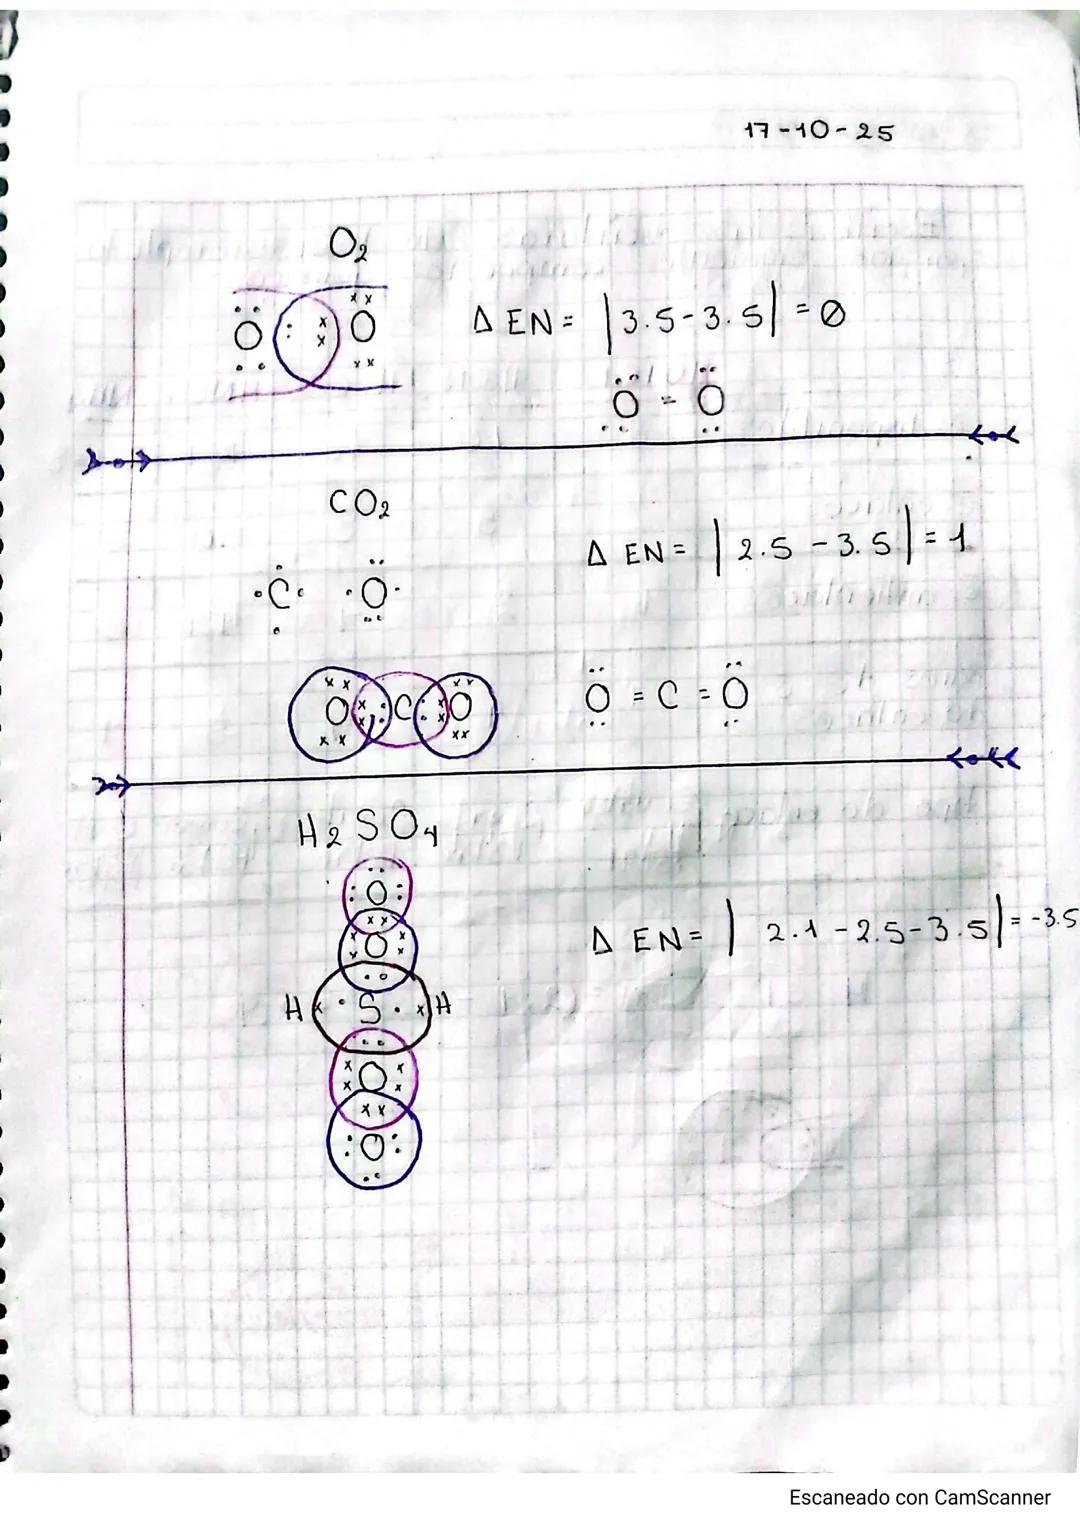 17-10-25
O₂
O O
Δ EN = |3.5-3.5| = 0
O = O
CO₂
Δ EN = |2.5-3.5| = 1
C O
O C O
O = C = O
H₂SO₄
O
O
Δ EN = |2.1-2.5-3.5| = -3.5
H S H
O
O
Escaneado con CamScanner